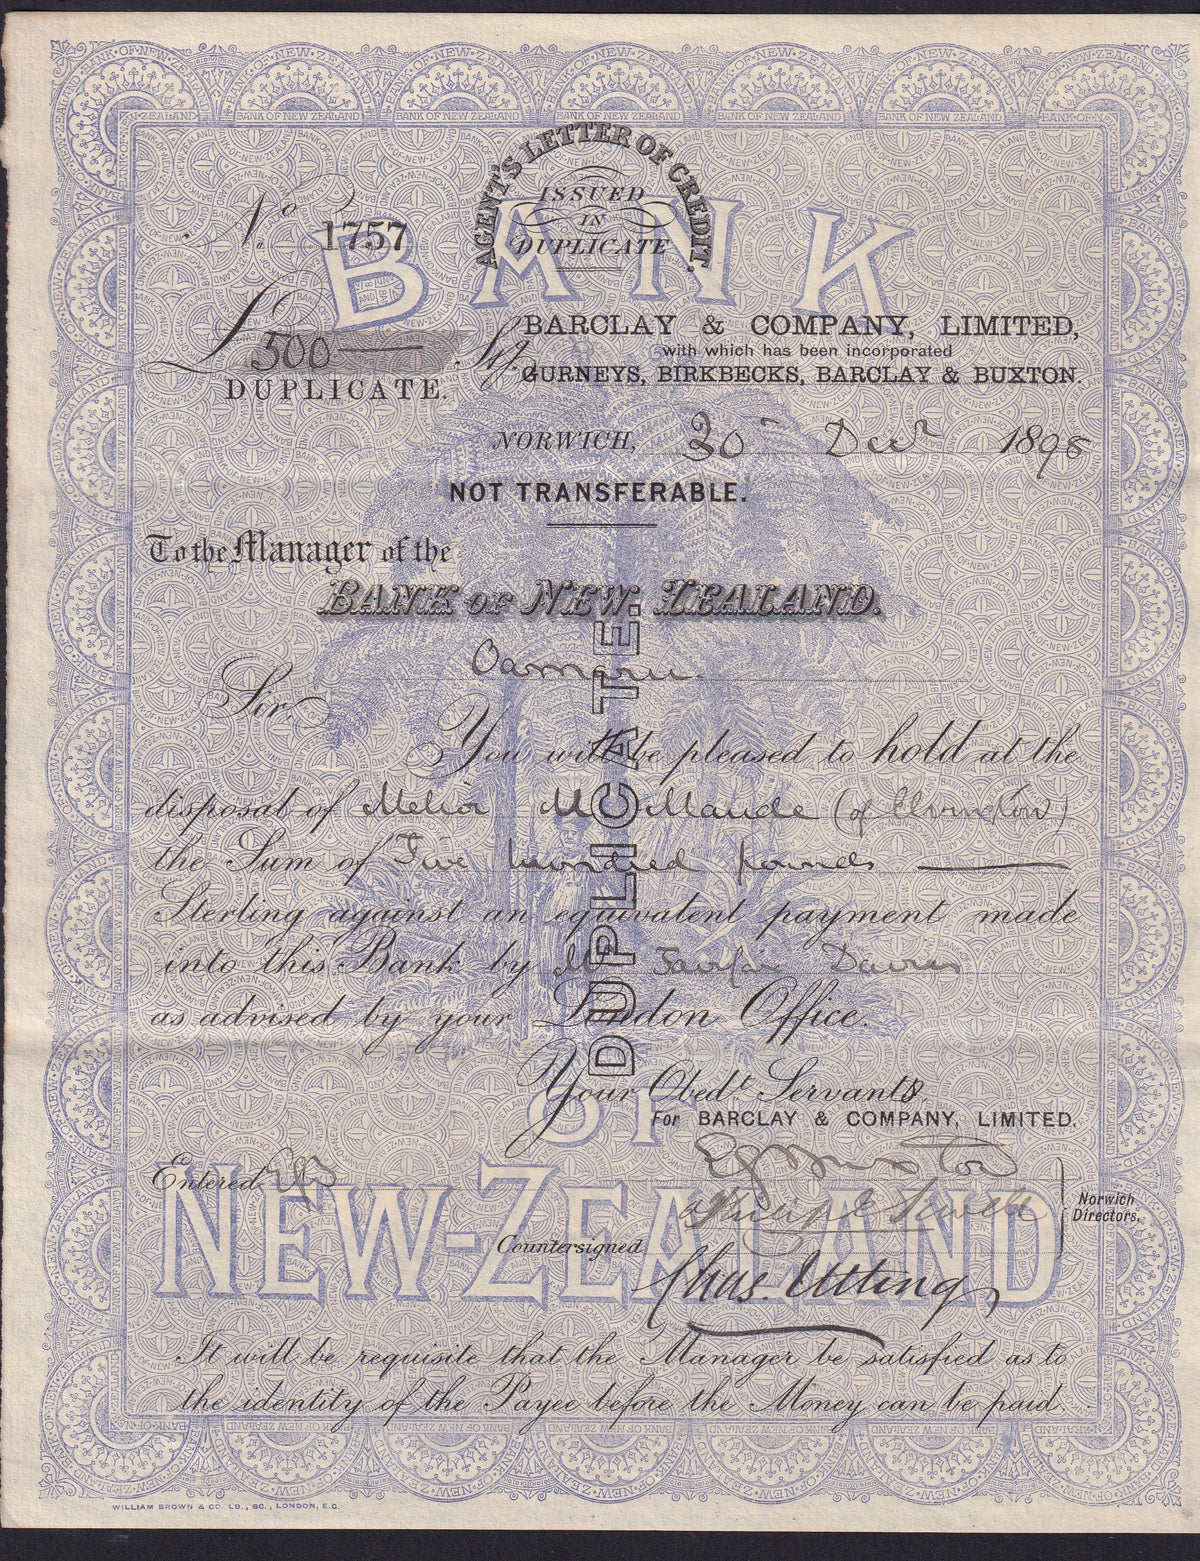 AGENT'S LETTER OF CREDIT.
ISSUED
IN
DUPLICATE
No. 1757
BANK
£500
DUPLICATE.
BARCLAY & COMPANY, LIMITED,
with which has been incorporated
GURNEYS, BIRKBECKS, BARCLAY & BUXTON.
NORWICH, 30 Decr 1898
NOT TRANSFERABLE.
To the Manager of the
BANK OF NEW ZEALAND.
Oamaru.
Sir,
You will be pleased to hold at the
disposal of M Maude (of
the Sum of Five hundred pounds
Sterling against an equivalent payment made
into this Bank by Mr
as advised by your London Office.
DUPLICATE.
Your Obedt Servants
For BARCLAY & COMPANY, LIMITED.
OF
Entered
Norwich
Directors.
NEW-ZEALAND
Countersigned Chas. Utting
It will be requisite that the Manager be satisfied as to
the identity of the Payee before the Money can be paid.
WILLIAM BROWN & CO. LD., SC., LONDON, E.C.